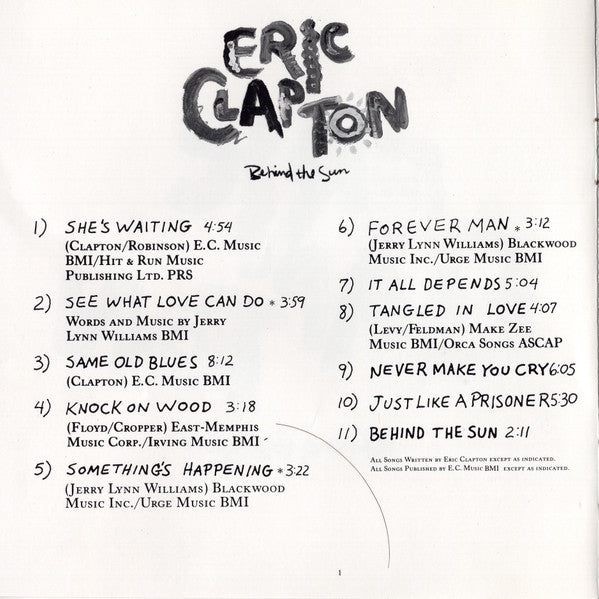 ERIC
CLAPTON
Behind the Sun
1) SHE'S WAITING 4:54
(Clapton/Robinson) E.C. Music
BMI/Hit & Run Music
Publishing Ltd. PRS
2) SEE WHAT LOVE CAN DO * 3:59
Words and Music by Jerry
Lynn Williams BMI
3) SAME OLD BLUES 8:12
(Clapton) E.C. Music BMI
4) KNOCK ON WOOD 3:18
(Floyd/Cropper) East-Memphis
Music Corp./Irving Music BMI
5) SOMETHING'S HAPPENING * 3:22
(Jerry Lynn Williams) Blackwood
Music Inc./Urge Music BMI
6) FOREVER MAN * 3:12
(Jerry Lynn Williams) Blackwood
Music Inc./Urge Music BMI
7) IT ALL DEPENDS 5:04
8) TANGLED IN LOVE 4:07
(Levy/Feldman) Make Zee
Music BMI/Orca Songs ASCAP
9) NEVER MAKE YOU CRY 6:05
10) JUST LIKE A PRISONER 5:30
11) BEHIND THE SUN 2:11
All Songs Written by Eric Clapton except as indicated.
All Songs Published by E.C. Music BMI except as indicated.
1